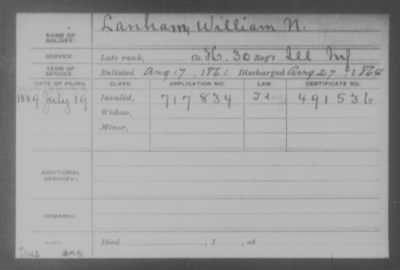 NAME OF SOLDIER: Lanham, William N.
SERVICE: Late rank, Co. H, 30 Reg't Ill Inf
TERM OF SERVICE: Enlisted Aug 17, 1861 Discharged Aug 27, 1864
DATE OF FILING. CLASS. APPLICATION NO. LAW. CERTIFICATE NO.
1889 July 19 Invalid, 717834 491536
Widow,
Minor,
ADDITIONAL SERVICES:
REMARKS:
Died , 1 , at